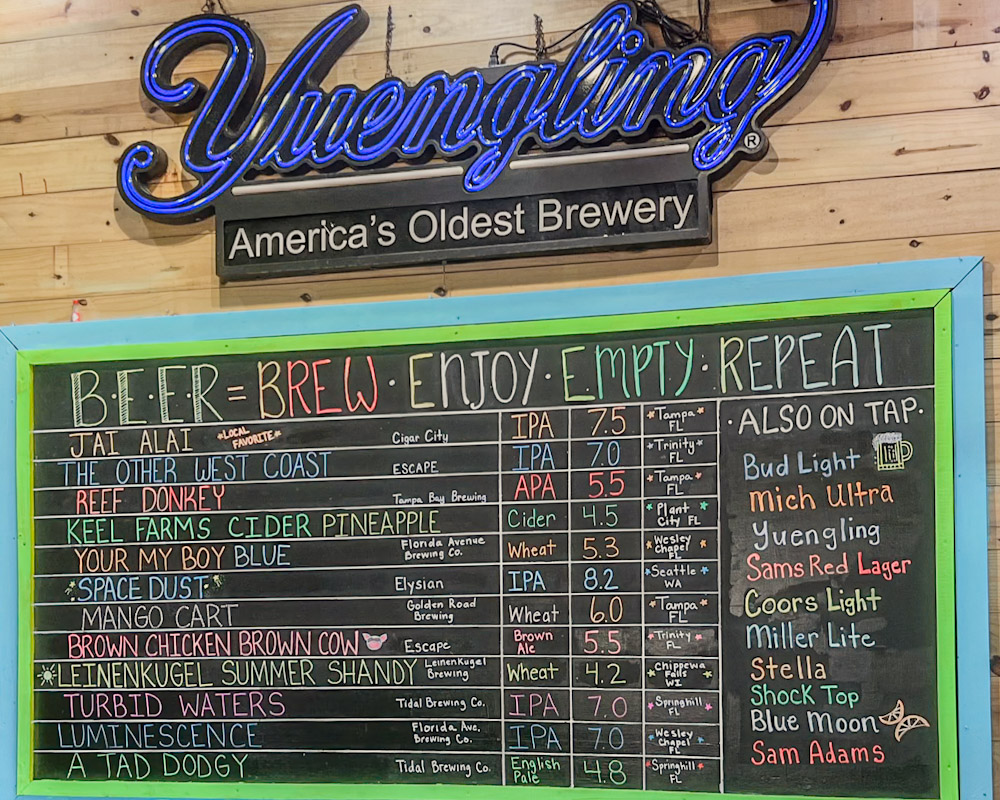 Yuengling®
America's Oldest Brewery
B·E·E·R = BREW · ENJOY · EMPTY · REPEAT
JAI ALAI *LOCAL FAVORITE* Cigar City IPA 7.5 *Tampa* FL
THE OTHER WEST COAST ESCAPE IPA 7.0 *Trinity* FL
REEF DONKEY Tampa Bay Brewing APA 5.5 *Tampa* FL
KEEL FARMS CIDER PINEAPPLE Cider 4.5 *Plant City FL*
YOUR MY BOY BLUE Florida Avenue Brewing Co. Wheat 5.3 *Wesley Chapel* FL
SPACE DUST Elysian IPA 8.2 *Seattle* WA
MANGO CART Golden Road Brewing Wheat 6.0 *Tampa* FL
BROWN CHICKEN BROWN COW Escape Brown Ale 5.5 *Trinity* FL
LEINENKUGEL SUMMER SHANDY Leinenkugel Brewing Wheat 4.2 *Chippewa Falls* WI
TURBID WATERS Tidal Brewing Co. IPA 7.0 *Springhill* FL
LUMINESCENCE Florida Ave. Brewing Co. IPA 7.0 *Wesley Chapel*
A TAD DODGY Tidal Brewing Co. English Pale 4.8 *Springhill* FL
·ALSO ON TAP·
Bud Light
Mich Ultra
Yuengling
Sams Red Lager
Coors Light
Miller Lite
Stella
Shock Top
Blue Moon
Sam Adams